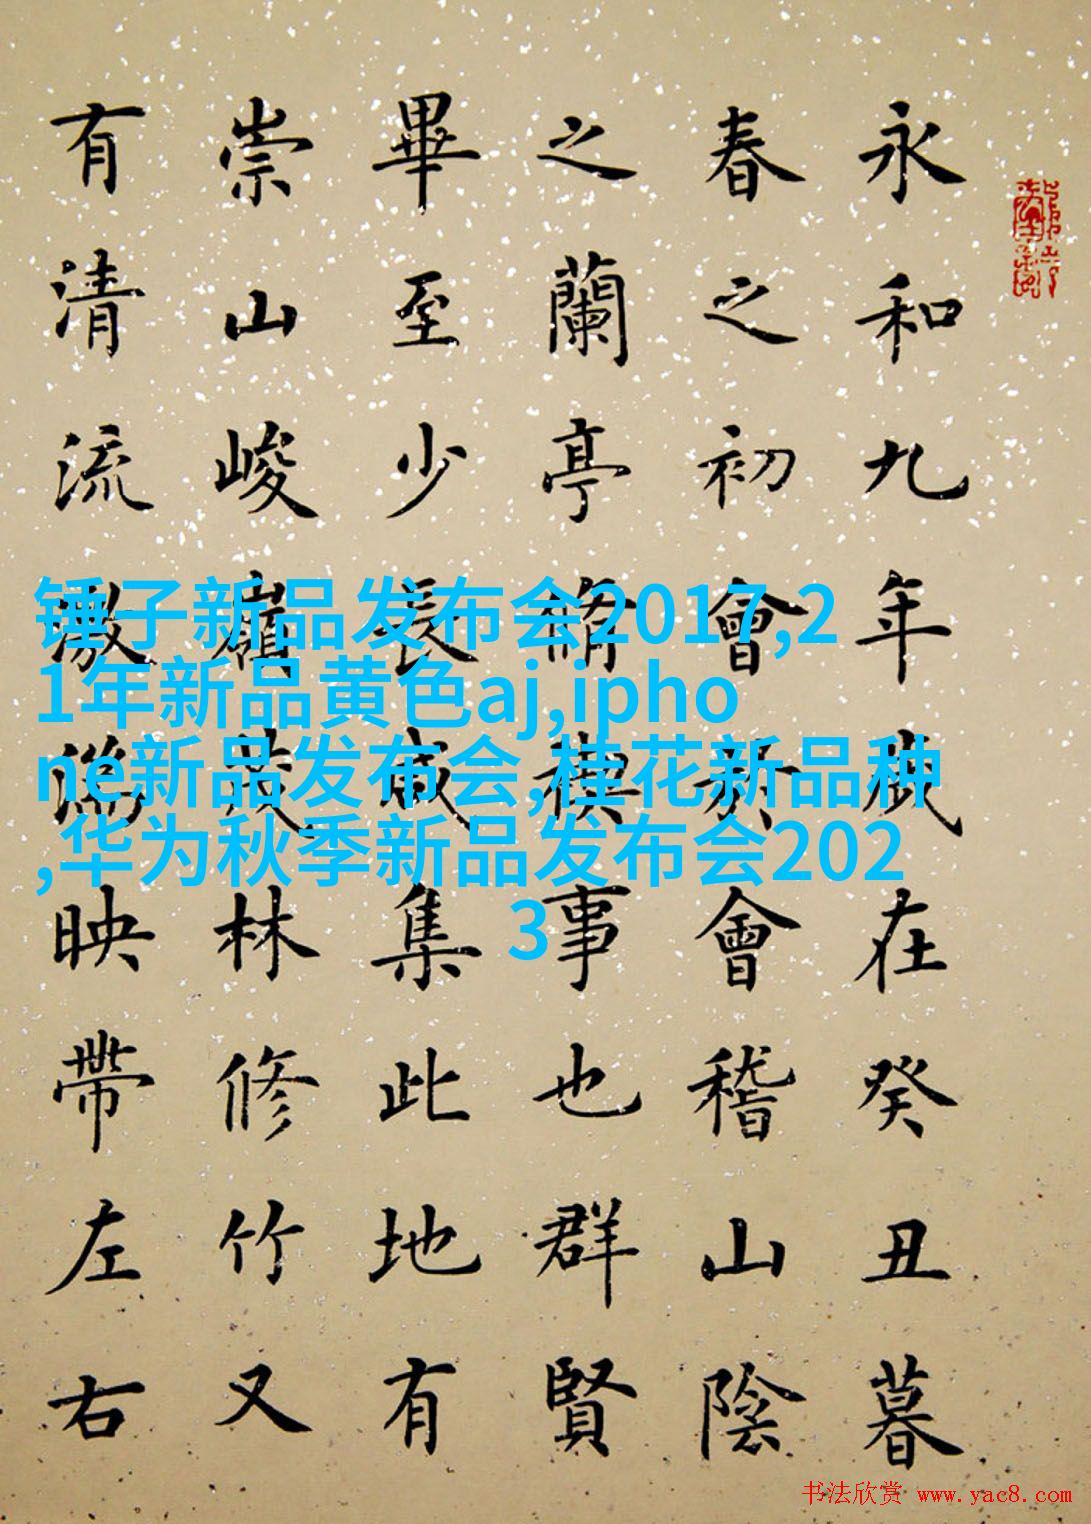 永和九年歲在癸丑暮
春之初會於會稽山陰
之蘭亭脩禊事也群賢
畢至少長咸集此地有
崇山峻嶺茂林修竹又
有清流激湍映帶左右
锤子新品发布会2017,2
1年新品黄色aj,ipho
ne新品发布会,桂花新品种
,华为秋季新品发布会202
3
书法欣赏 www.yac8.com